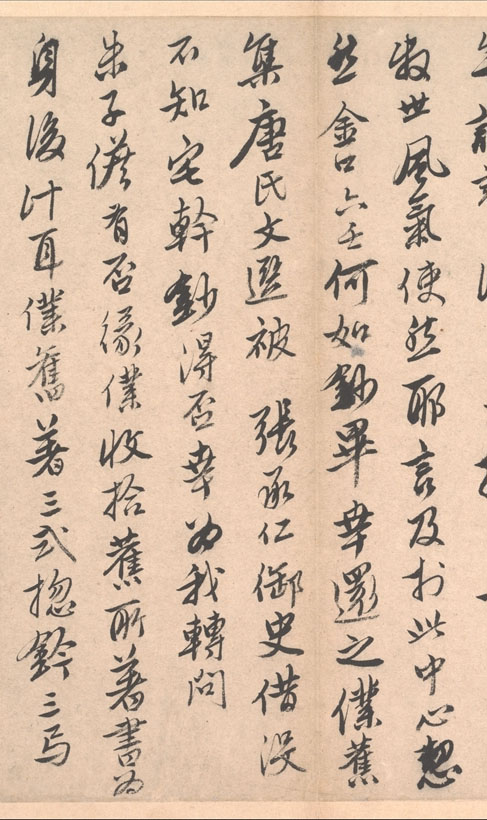 世風氣使然耶言及於此中心
然金口六壬何如鈔畢幸還之僕舊
集唐氏文選被 張承仁御史借沒
不知宅幹鈔得否幸為我轉問
朱子有否緣僕收拾舊所著書為
身後計耳僕舊著三式揔鈐三